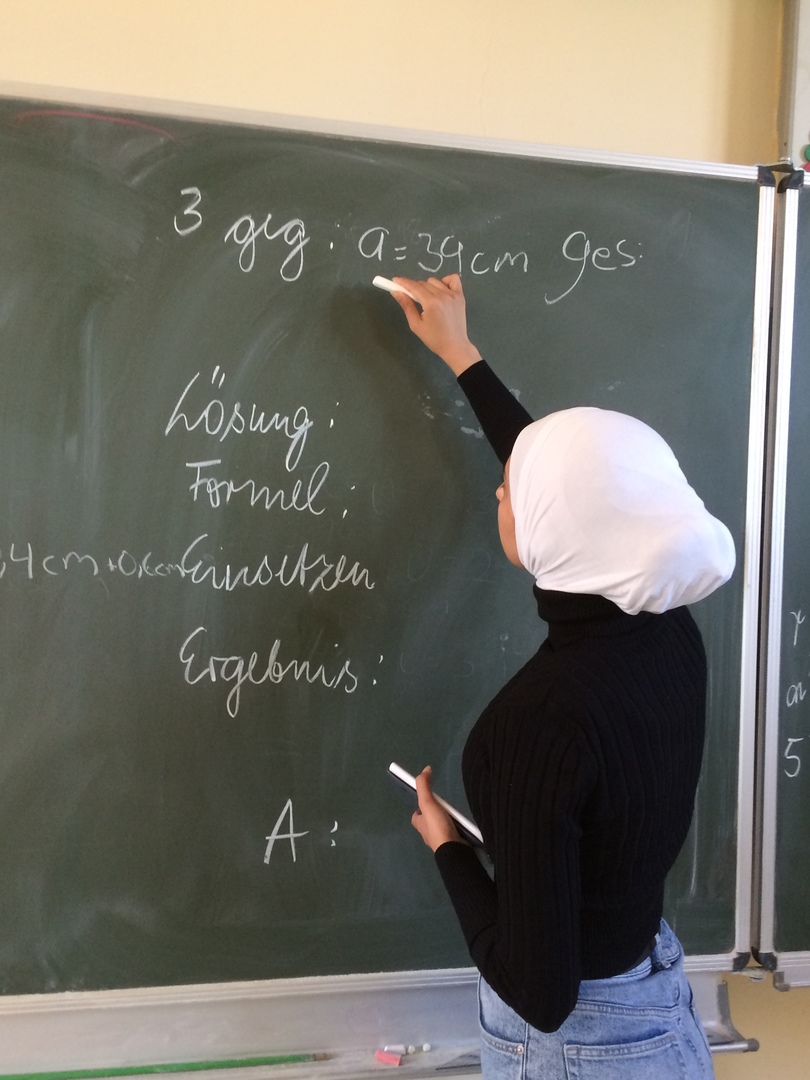 3 geg: a = 39cm ges:
Lösung:
Formel:
4cm
Einsetzen
Ergebnis:
A:
5